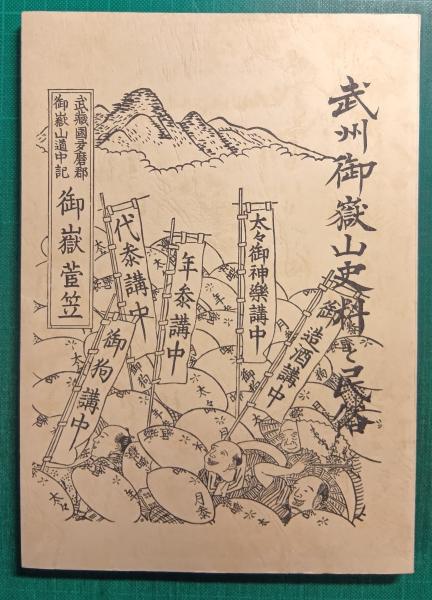 武州御嶽山史料と民俗
武蔵國多磨郡
御嶽山道中記
御嶽菅笠
太々御神樂講中
御造酒講中
年参講中
代参講中
御狗講中
太々
年
月参